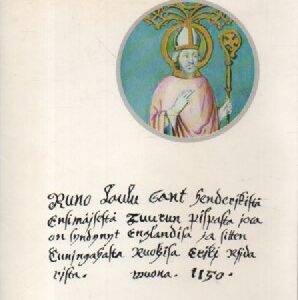 Runo Laulu Sant Henderikistä
Ensimäisestä Tuurun pispasta joca
on syndynyt Englandisa ja sitten
Cuningahasta Ruotzisa Eriki Rida
rista. wuona. 1150.